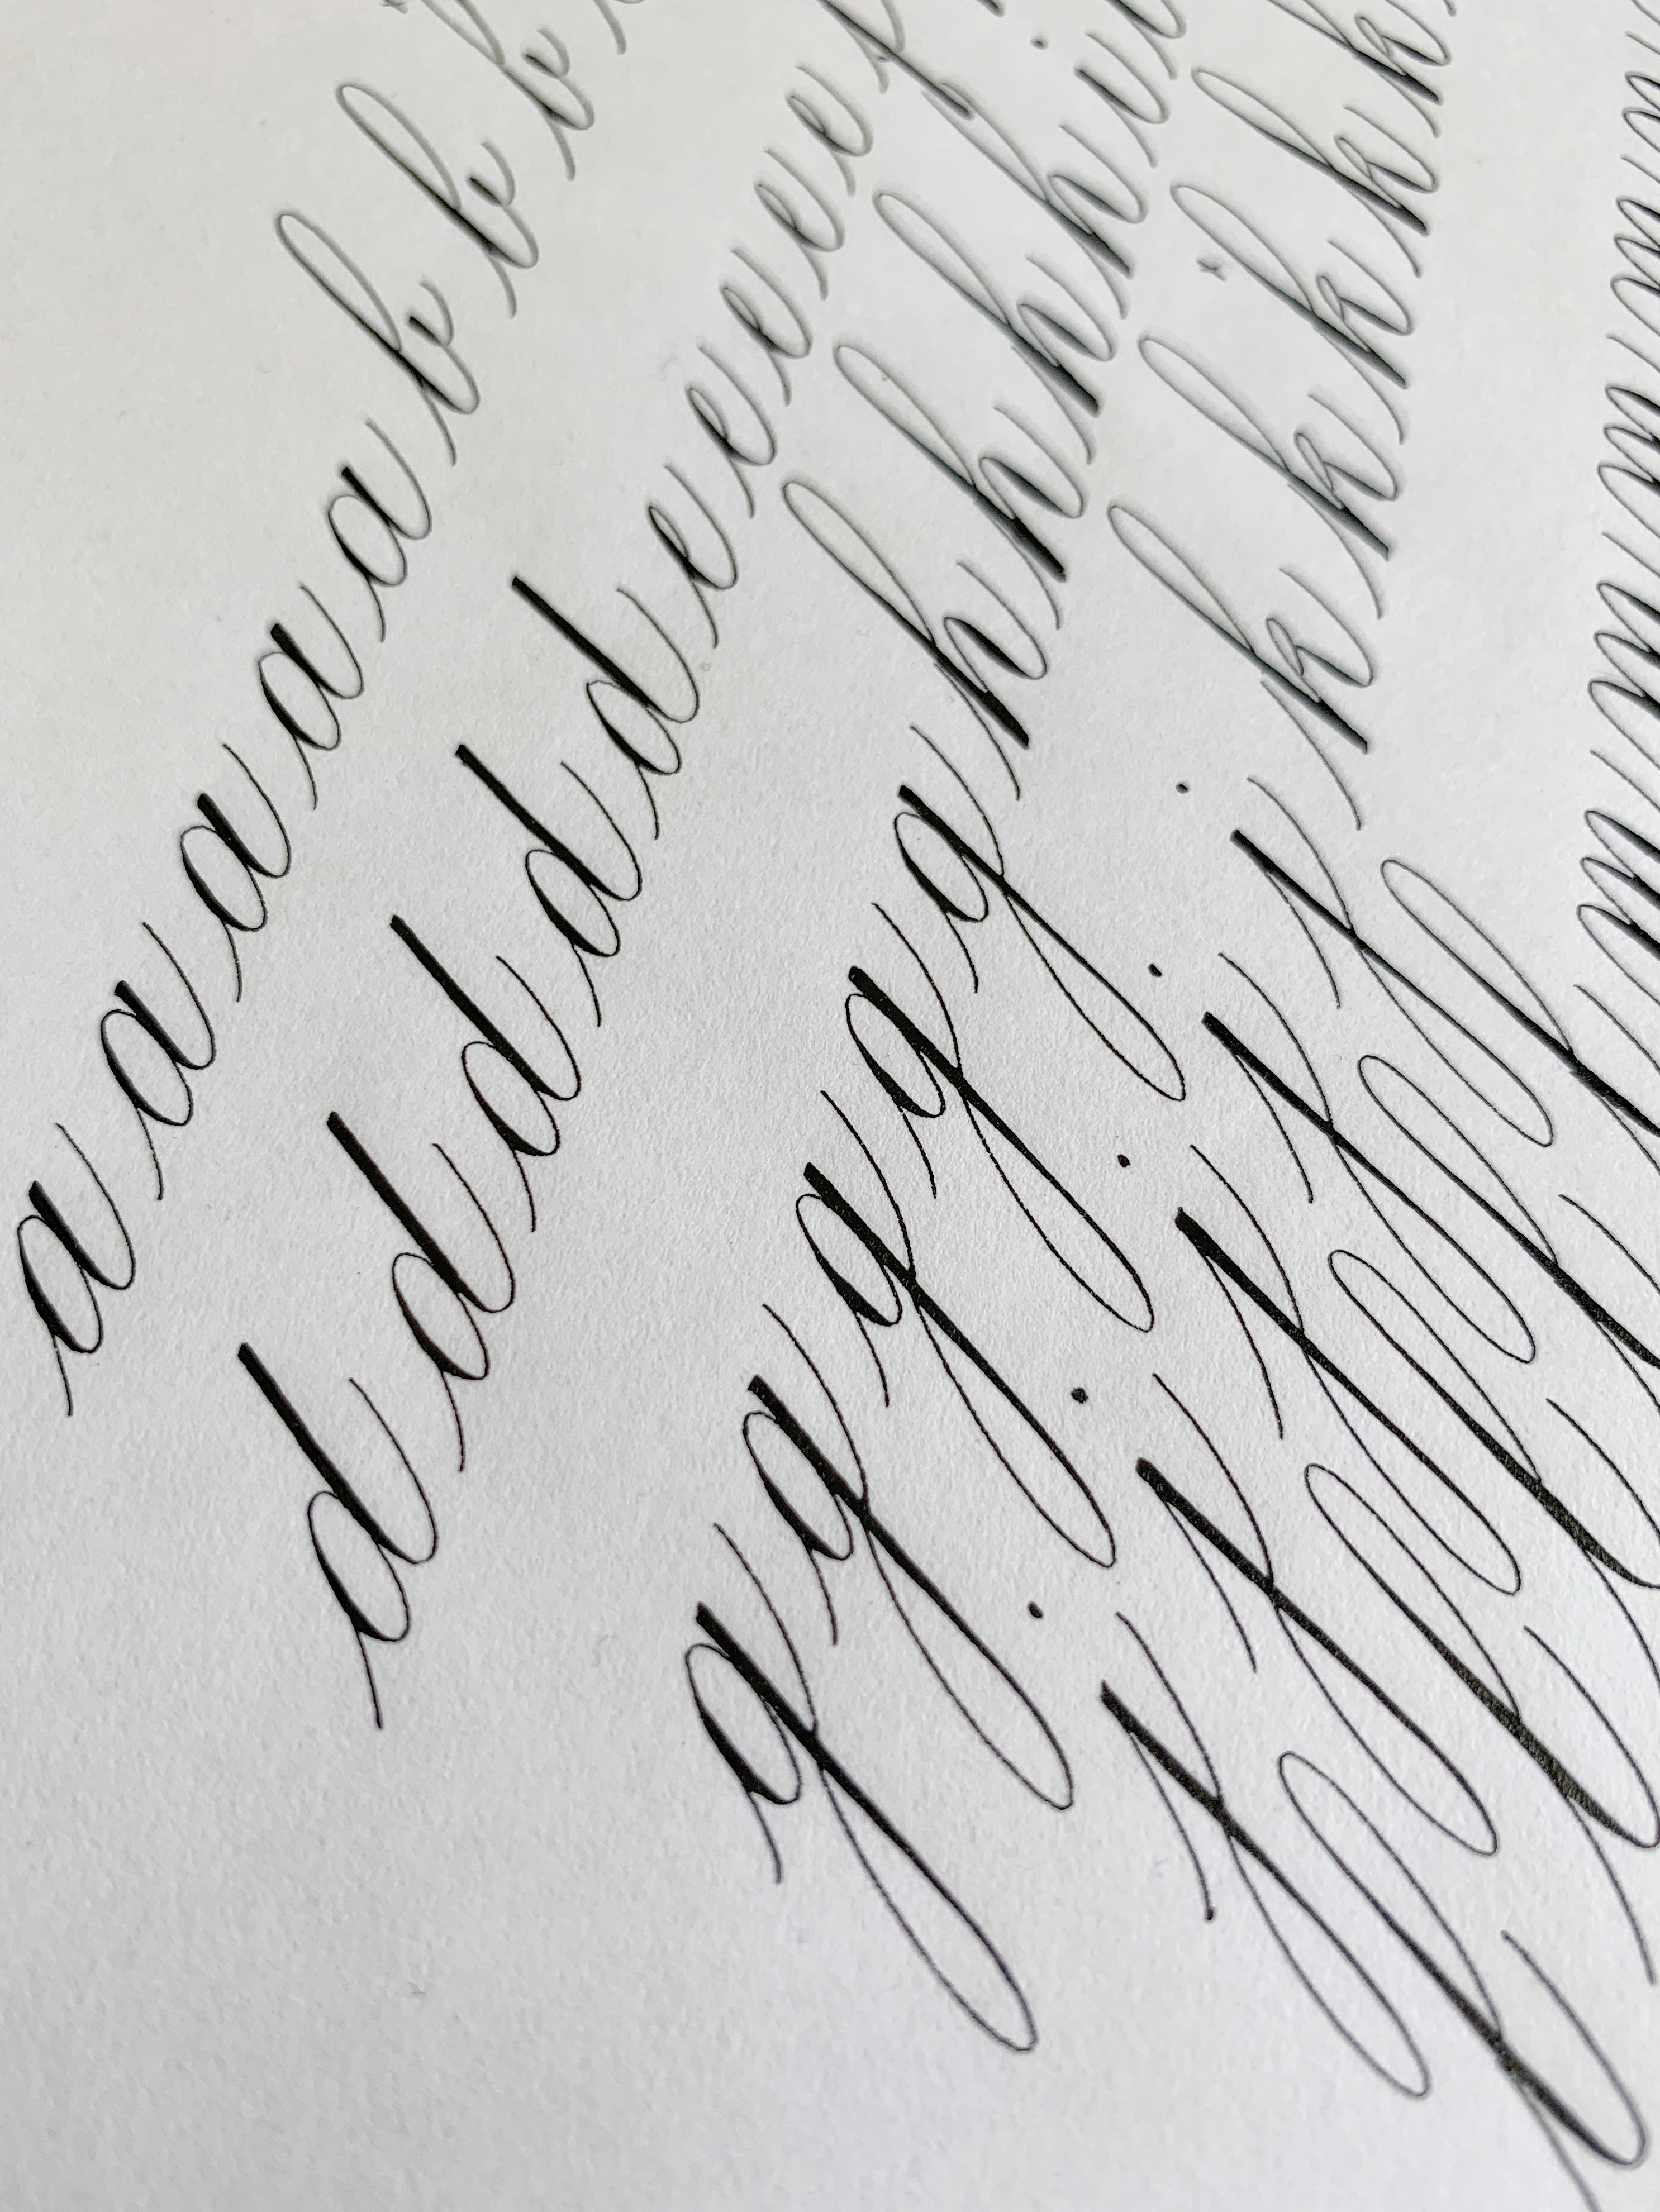 a a a a a b b b
d d d d d e e e e e
g g g g g h h h h i i
j j j j j k k k k k
l l l l l m m m m m